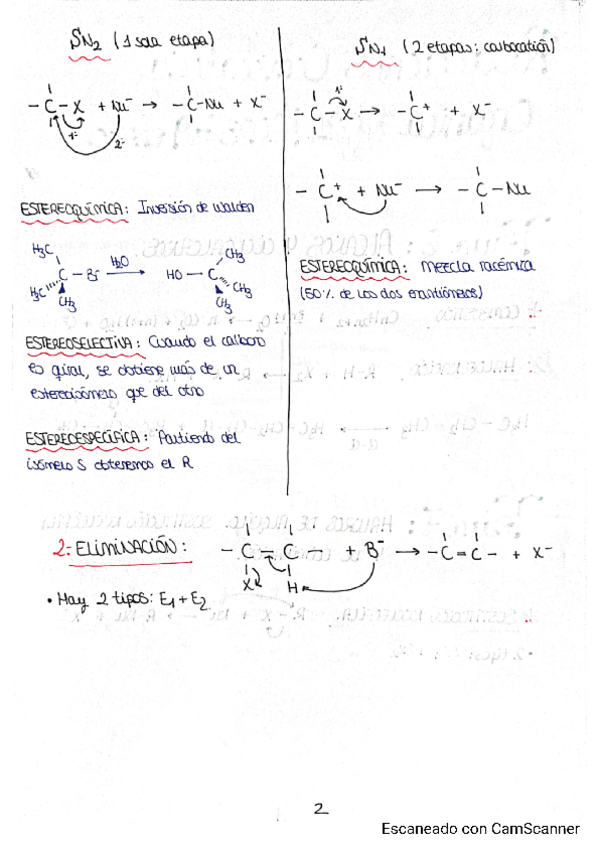 SN2 (1 sola etapa)
- C - X + Nu⁻ → - C - Nu + X⁻
1º
2º
ESTEREOQUÍMICA: Inversión de Walden
H₃C
C - Br H₂O → HO - C
H₃C CH₃
CH₃
CH₃
CH₃
ESTEREOSELECTIVA: Cuando el carbono
es quiral, se obtiene más de un
estereoisómero que del otro
ESTEREOESPECÍFICA: Partiendo del
isómero S obtenemos el R
SN1 (2 etapas; carbocatión)
- C - X → - C⁺ + X⁻
- C⁺ + Nu⁻ → - C - Nu
ESTEREOQUÍMICA: Mezcla racémica
(50% de los dos enantiómeros)
2- ELIMINACIÓN:
- C - C - + B⁻ → - C = C - + X⁻
X H
• Hay 2 tipos: E1 + E2
2
Escaneado con CamScanner